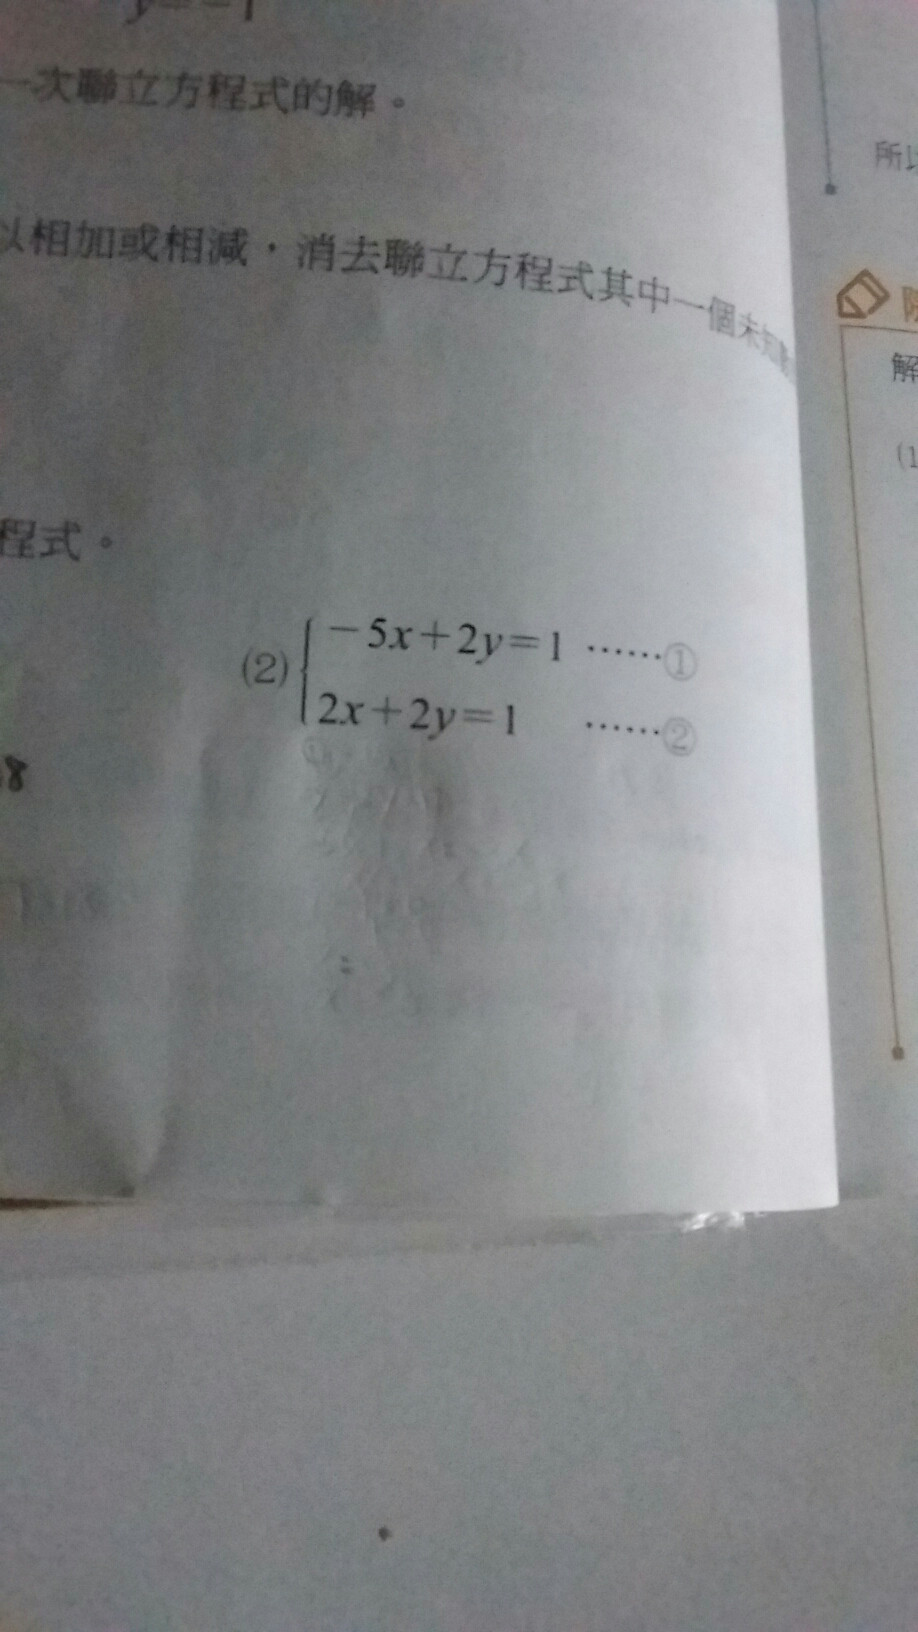 y=-1
一次聯立方程式的解。
以相加或相減,消去聯立方程式其中一個未知數
程式。
(2) { -5x+2y=1 ……①
2x+2y=1 ……②
8
所以
解
(1